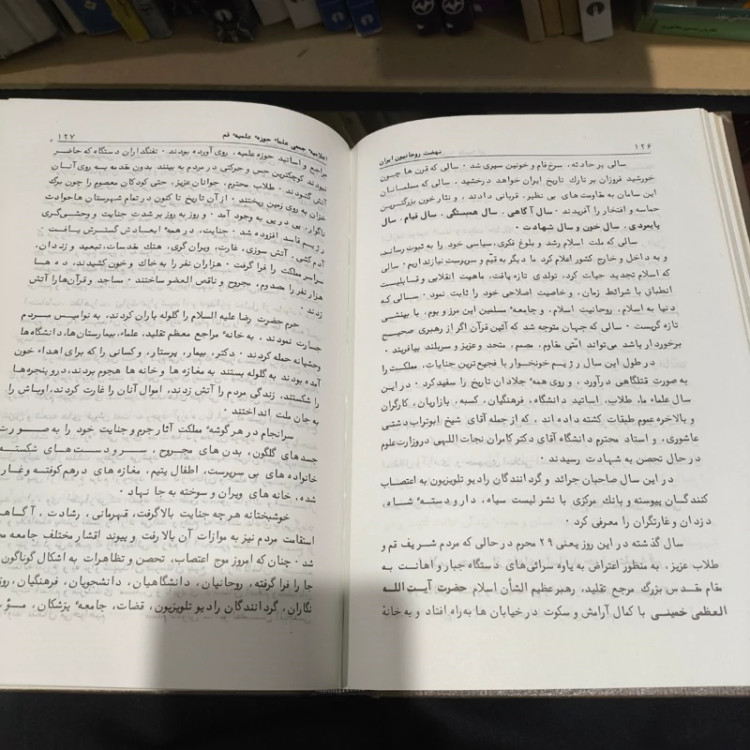 ۱۲۶
نهضت روحانیون ایران
سالی پر حادثه، سرخ‌فام و خونین سپری شد ۰ سالی که قرن ها چون
خورشید فروزان بر تارک تاریخ ایران خواهد درخشید ۰ سالی که مسلمانان
این سامان به مقاومت های بی نظیر، و قربانی دادند، و نثار خون بزرگترین
حماسه و افتخار را آفریدند ۰ سال آگاهی ۰ سال همبستگی ۰ سال قیام ۰ سال
پایمردی ۰ سال خون و سال شهادت ۰
سالی که ملت اسلام رشد و بلوغ فکری، سیاسی خود را به ثبوت رساند
و به داخل و خارج کشور اعلام کرد ما دیگر به قیّم و سرپرست نیازنداریم ۰ سالی
که اسلام تجدید حیات کرد، تولدی تازه یافت، ماهیت انقلابی و قابلیت
انطباق با شرائط زمان، و خاصیت اصلاحی خود را ثابت نمود ۰ سالی که
دنیا به اسلام، روحانیت اسلام، و جامعهٔ مسلمین این مرز و بوم، با بینشی
تازه نگریست ۰ سالی که جهان متوجه شد که آئین قرآن اگر از رهبری صحیح
برخوردار باشد می‌تواند امّتی مقاوم، مصمم، متحد و عزیز و سربلند بیافریند ۰
در طول این سال رژیم خونخوار با فجیع‌ترین جنایات، مملکت را
به صورت قتلگاهی درآورد، و روی همهٔ جلادان تاریخ را سفید کرد ۰ در این
سال علماء ما، طلاب، اساتید دانشگاه، فرهنگیان، کسبه، بازاریان، کارگران
و بالاخره عموم طبقات کشته داده اند، که از جمله آقای شیخ ابوتراب دشتی
عاشوری، و استاد محترم دانشگاه آقای دکتر کامران نجات اللهی در وزارت علوم
در حال تحصن به شهادت رسیدند ۰
در این سال صاحبان جرائد و گردانندگان رادیو تلویزیون به اعتصاب
کنندگان پیوسته و بانک مرکزی با نشر لیست سیاه، دار و دستهٔ شاه،
دزدان و غارتگران را معرفی کرد ۰
سال گذشته در این روز یعنی ۲۹ محرم در حالی که مردم شریف قم و
طلاب عزیز، به منظور اعتراض به یاوه سرائی‌های دستگاه جبار و اهانت به
مقام مقدس بزرگ مرجع تقلید، رهبر عظیم الشأن اسلام حضرت آیت الله
العظمی خمینی با کمال آرامش و سکوت در خیابان ها به‌راه افتاد و به خانهٔ
۱۲۷
اعلامیهٔ جمعی علماء حوزهٔ علمیهٔ قم
مراجع و اساتید حوزه علمیه، روی آورده بودند ۰ تفنگداران دستگاه که حاضر
نبودند کوچکترین جس و حرکتی در مردم به بینند بدون مقدمه به روی آنان
آتش گشودند ۰ طلاب محترم، جوانان عزیز، حتی کودکان معصوم را چون برگ
خزان به روی زمین ریختند ۰ از آن تاریخ تا کنون در تمام شهرستان ها حوادث
ناگوار، پی در پی به وجود آمد ۰ و روز به روز بر شدت جنایت و وحشی‌گری
رژیم فاسد افزوده شد ۰ جنایت، در همهٔ ابعادش گسترش یافت
آدم کشی، آتش سوزی، غارت، ویران گری، هتک مقدسات، تبعید و زندان،
سراسر مملکت را فرا گرفت ۰ هزاران نفر را به خاک و خون کشیدند، ده ها
هزار نفر را مصدوم، مجروح و ناقص العضو ساختند ۰ مساجد و قرآن‌ها را آتش
زدند ۰
حرم حضرت رضا علیه السلام را گلوله باران کردند، به نوامیس مردم
جسارت نمودند ۰ به خانهٔ مراجع معظم تقلید، علماء، بیمارستان‌ها، دانشگاه‌ها
وحشیانه حمله کردند ۰ دکتر، بیمار، پرستار، و کسانی را که برای اهداء خون
آمده بودند به گلوله بستند ۰ به مغازه ها و خانه ها هجوم بردند، در و پنجره‌ها
را شکستند، زندگی مردم را آتش زدند، اموال آنان را غارت کردند، اوباش را
به جان ملت انداختند ۰
سرانجام در هر گوشهٔ مملکت آثار جرم و جنایت خود را به صورت
جسدهای گلگون، بدن های مجروح، سر و دست‌های شکسته
خانواده های بی سرپرست، اطفال یتیم، مغازه های درهم کوفته و غار
شده، خانه های ویران و سوخته به جا نهاد ۰
خوشبختانه هر چه جنایت بالا گرفت، قهرمانی، رشادت، آگاهی
استقامت مردم نیز به موازات آن بالا رفت و پیوند اقشار مختلف جامعه مح
شد ۰ چنان که امروز موج اعتصاب، تحصن و تظاهرات به اشکال گوناگون
جا را فرا گرفته، روحانیان، دانشگاهیان، دانشجویان، فرهنگیان، روز
نگاران، گردانندگان رادیو تلویزیون، قضات، جامعهٔ پزشکان،